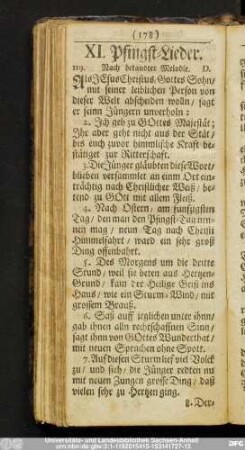 (178)
XI. Pfingst-Lieder.
119. Nach bekandter Melodie. D.
Als JEsus Christus, Gottes Sohn,
mit seiner leiblichen Person von
dieser Welt abscheiden wolln, sagt
er seinn Jüngern unverholn:
2. Ich geb zu GOttes Majestät;
Ihr aber geht nicht aus der Stät,
bis euch zuvor himmlische Kraft be-
stätiget zur Ritterschaft.
3. Die Jünger gläubten diese Wort,
blieben versammlet an einm Ort ein-
trächtig nach Christlicher Weiß, be-
tend zu GOtt mit allem Fleiß.
4. Nach Ostern, am funfzigsten
Tag, den man den Pfingst-Tag nen-
nen mag, neun Tag nach Christi
Himmelfahrt, ward ein sehr groß
Ding offenbahrt.
5. Des Morgens um die dritte
Stund, weil sie beten aus Hertzen-
Grund, kam der Heilge Geist ins
Haus, wie ein Sturm-Wind, mit
grossem Brauß.
6. Saß auff jeglichen unter ihnn,
gab ihnen alln rechtschaffnen Sinn,
sagt ihnn von GOttes Wunderthat,
mit neuen Sprachen ohne Spott.
7. Auf diesen Sturm lief viel Volck
zu, und sieh, die Jünger redten nu
mit neuen Zungen grosse Ding, daß
vielen sehr zu Hertzen ging.
8. Der-
Universitäts- und Landesbibliothek Sachsen-Anhalt
DFG